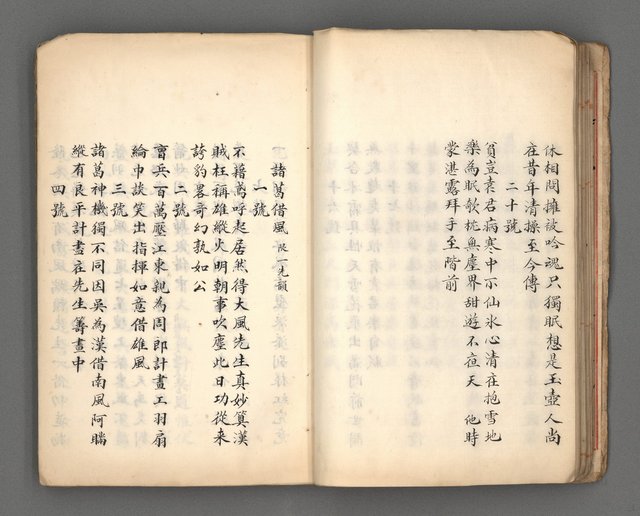 休相問擁被吟魂只獨眠想是玉壺人尚
在昔年清操至今傳
二十號
貧豈袁君病寒中示仙氷心清在抱雪地
樂為眠欹枕無塵界甜遊不夜天 他時
蒙湛露拜手至階前
諸葛借風 限一先韻
一號
不藉鳶呼起居然得大風先生真妙算漢
賊枉稱雄縱火明朝事吹塵此日功從來
誇豹畧奇幻孰如公
二號
曹兵百萬壓江東親為周郎計畫工羽扇
綸巾談笑出指揮如意借雄風
三號
諸葛神機獨不同因吳為漢借南風阿瞞
縱有良平計盡在先生籌畫中
四號